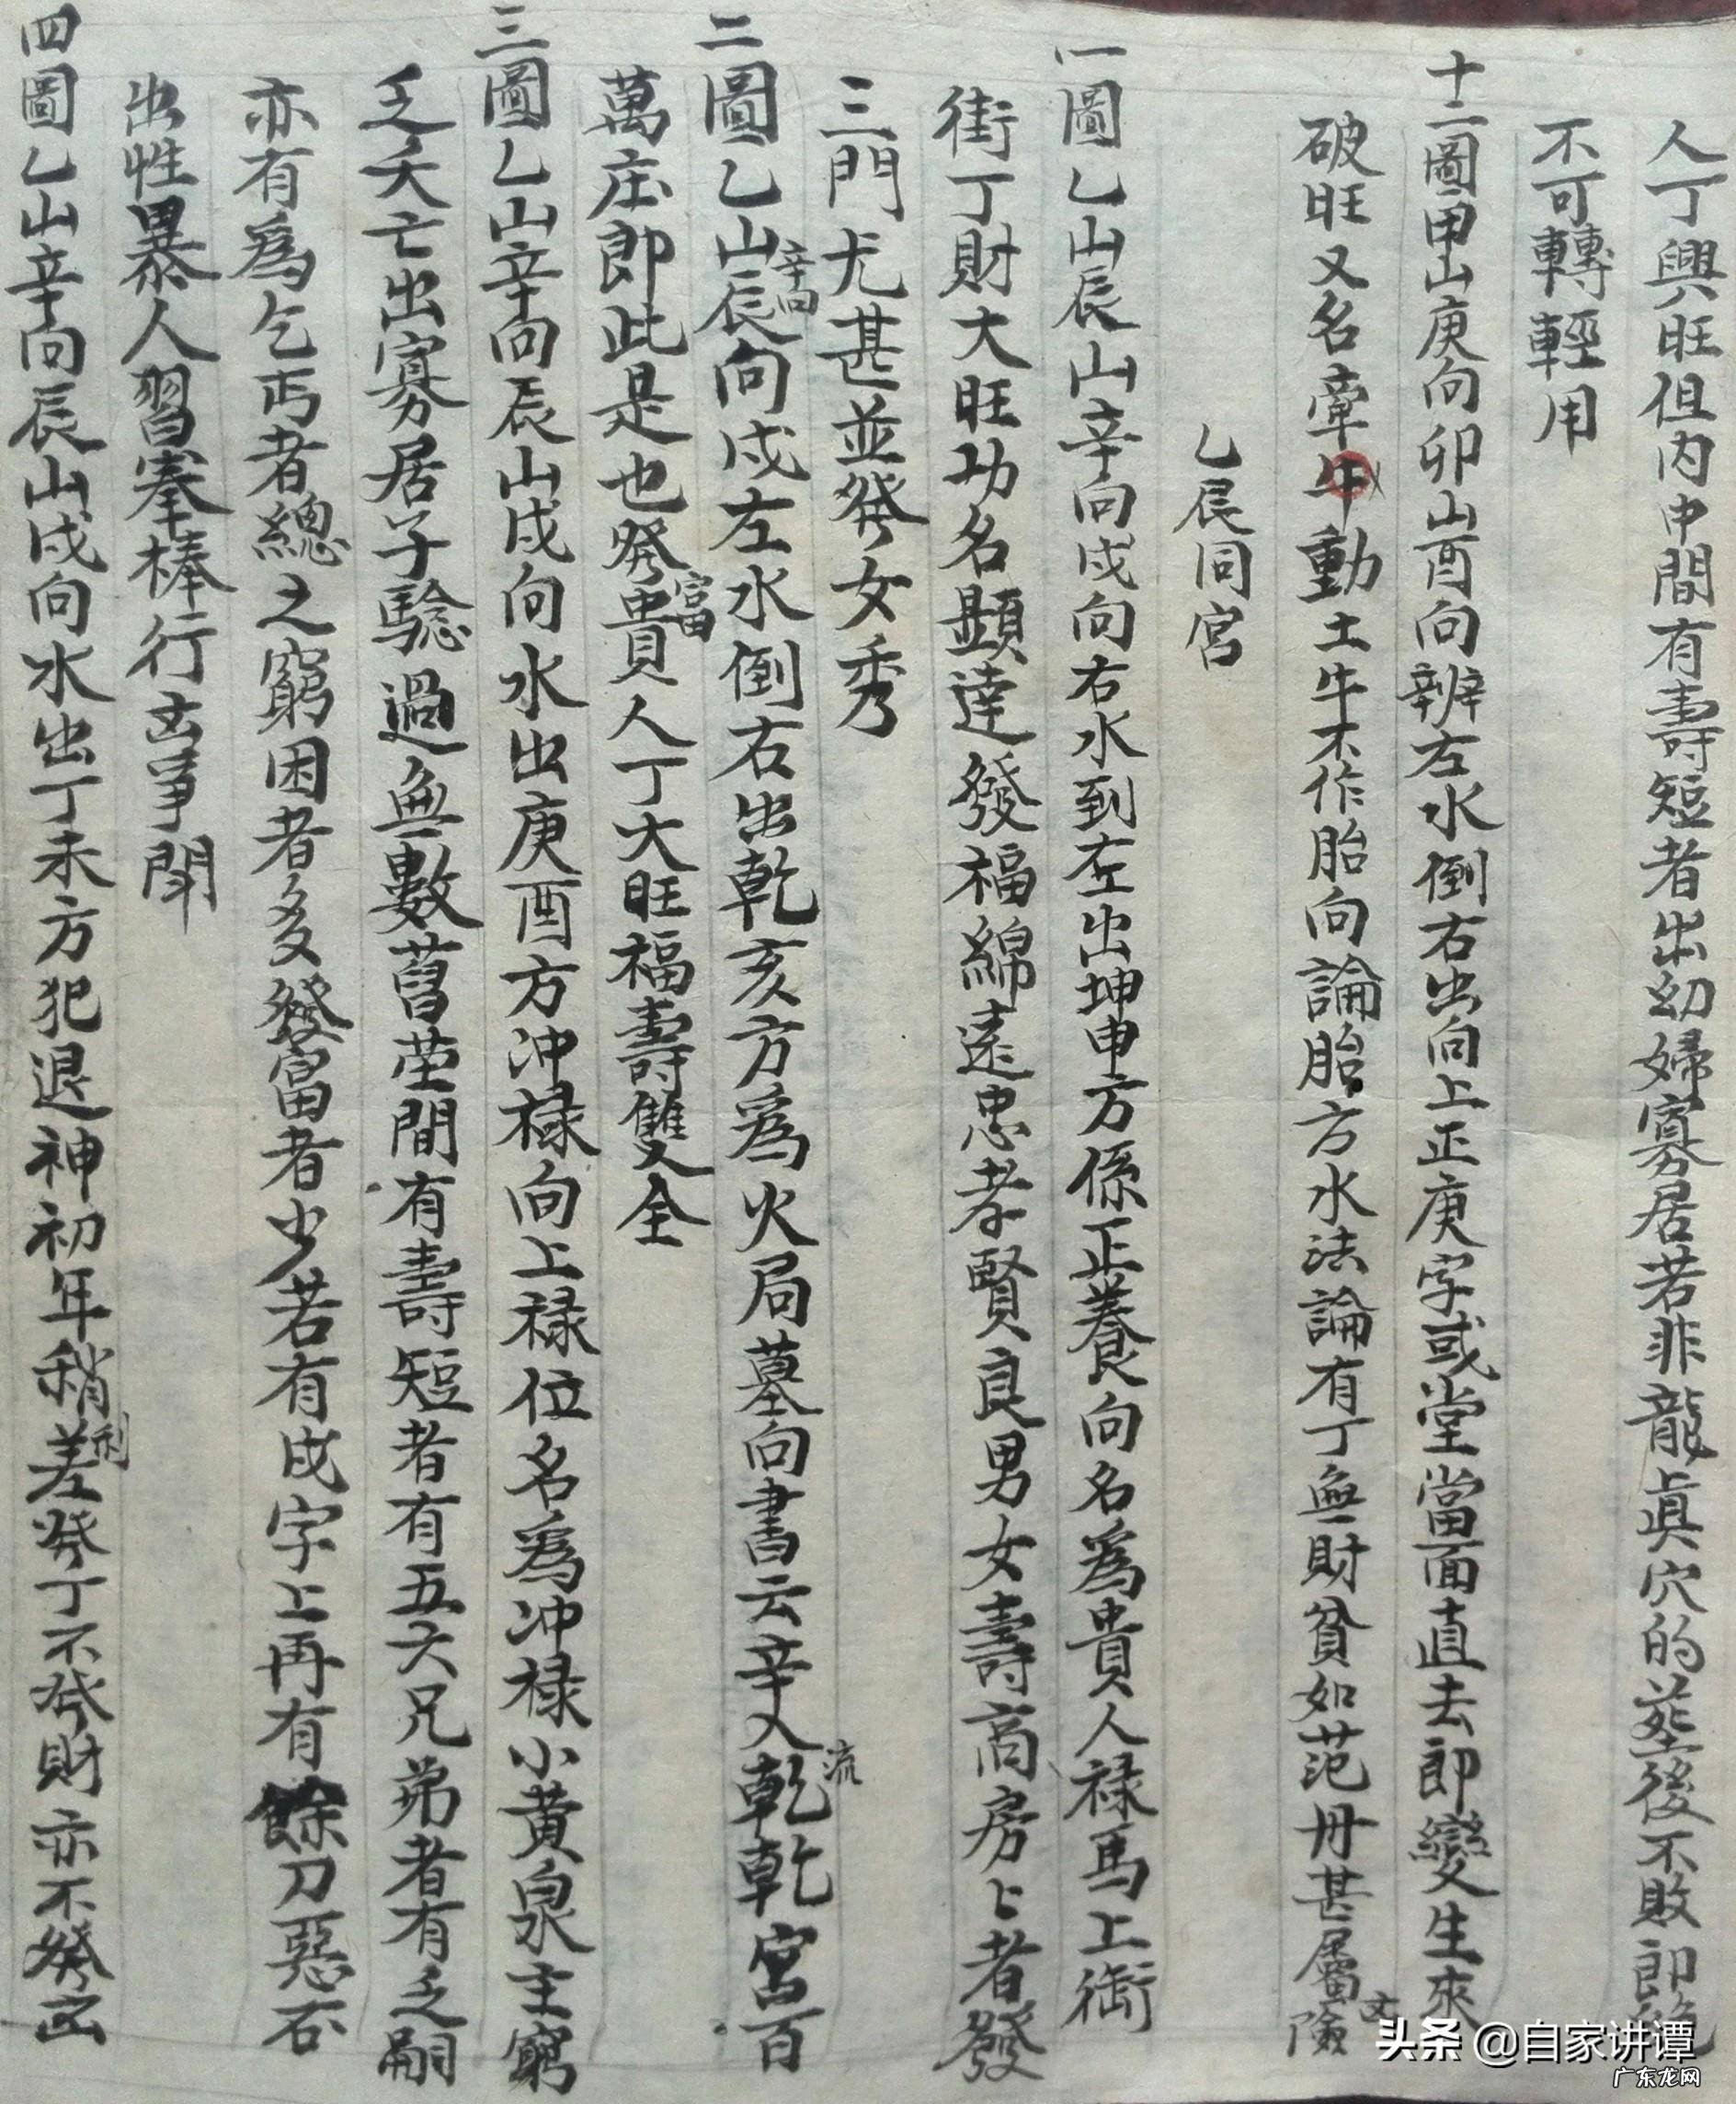 人丁興旺但内中間有壽短者出幼婦寡居若非龍真穴的塟後不敗即絶
不可轉輕用
十二圖甲山庚向卯山酉向辨左水倒右出向上正庚字或堂當面直去即變生來
破旺又名牽牛動土牛不作胎向論胎方水法論有丁無財貧如范毋甚屬險
乙辰同宮
一圖乙山辰山辛向戌向右水到左出坤申方係正養向名為貴人禄馬上街
街丁財大旺功名顕達發福綿遠忠孝賢良男女壽高房上者發
三門尤甚並發女秀
二圖乙山辛向辰向戌左水倒右出乾亥方為火局墓向書云辛入乾乾宮百
萬庄即此是也發富貴人丁大旺福壽雙全
三圖乙山辛向辰山戌向水出庚酉方冲禄向上禄位名為冲禄小黄泉主窮
乏夭亡出寡居子騐過無數舊塋間有壽短者有五六兄弟者有乏嗣
亦有為乞丐者總之窮困者多發富者少若有戌字上再有餘刀惡石
出性暴人習拳棒行凶事鬧
四圖乙山辛向辰山戌向水出丁未方犯退神初年稍利差發丁不發財亦不發凶
头条 @自家讲谭
广东龙网